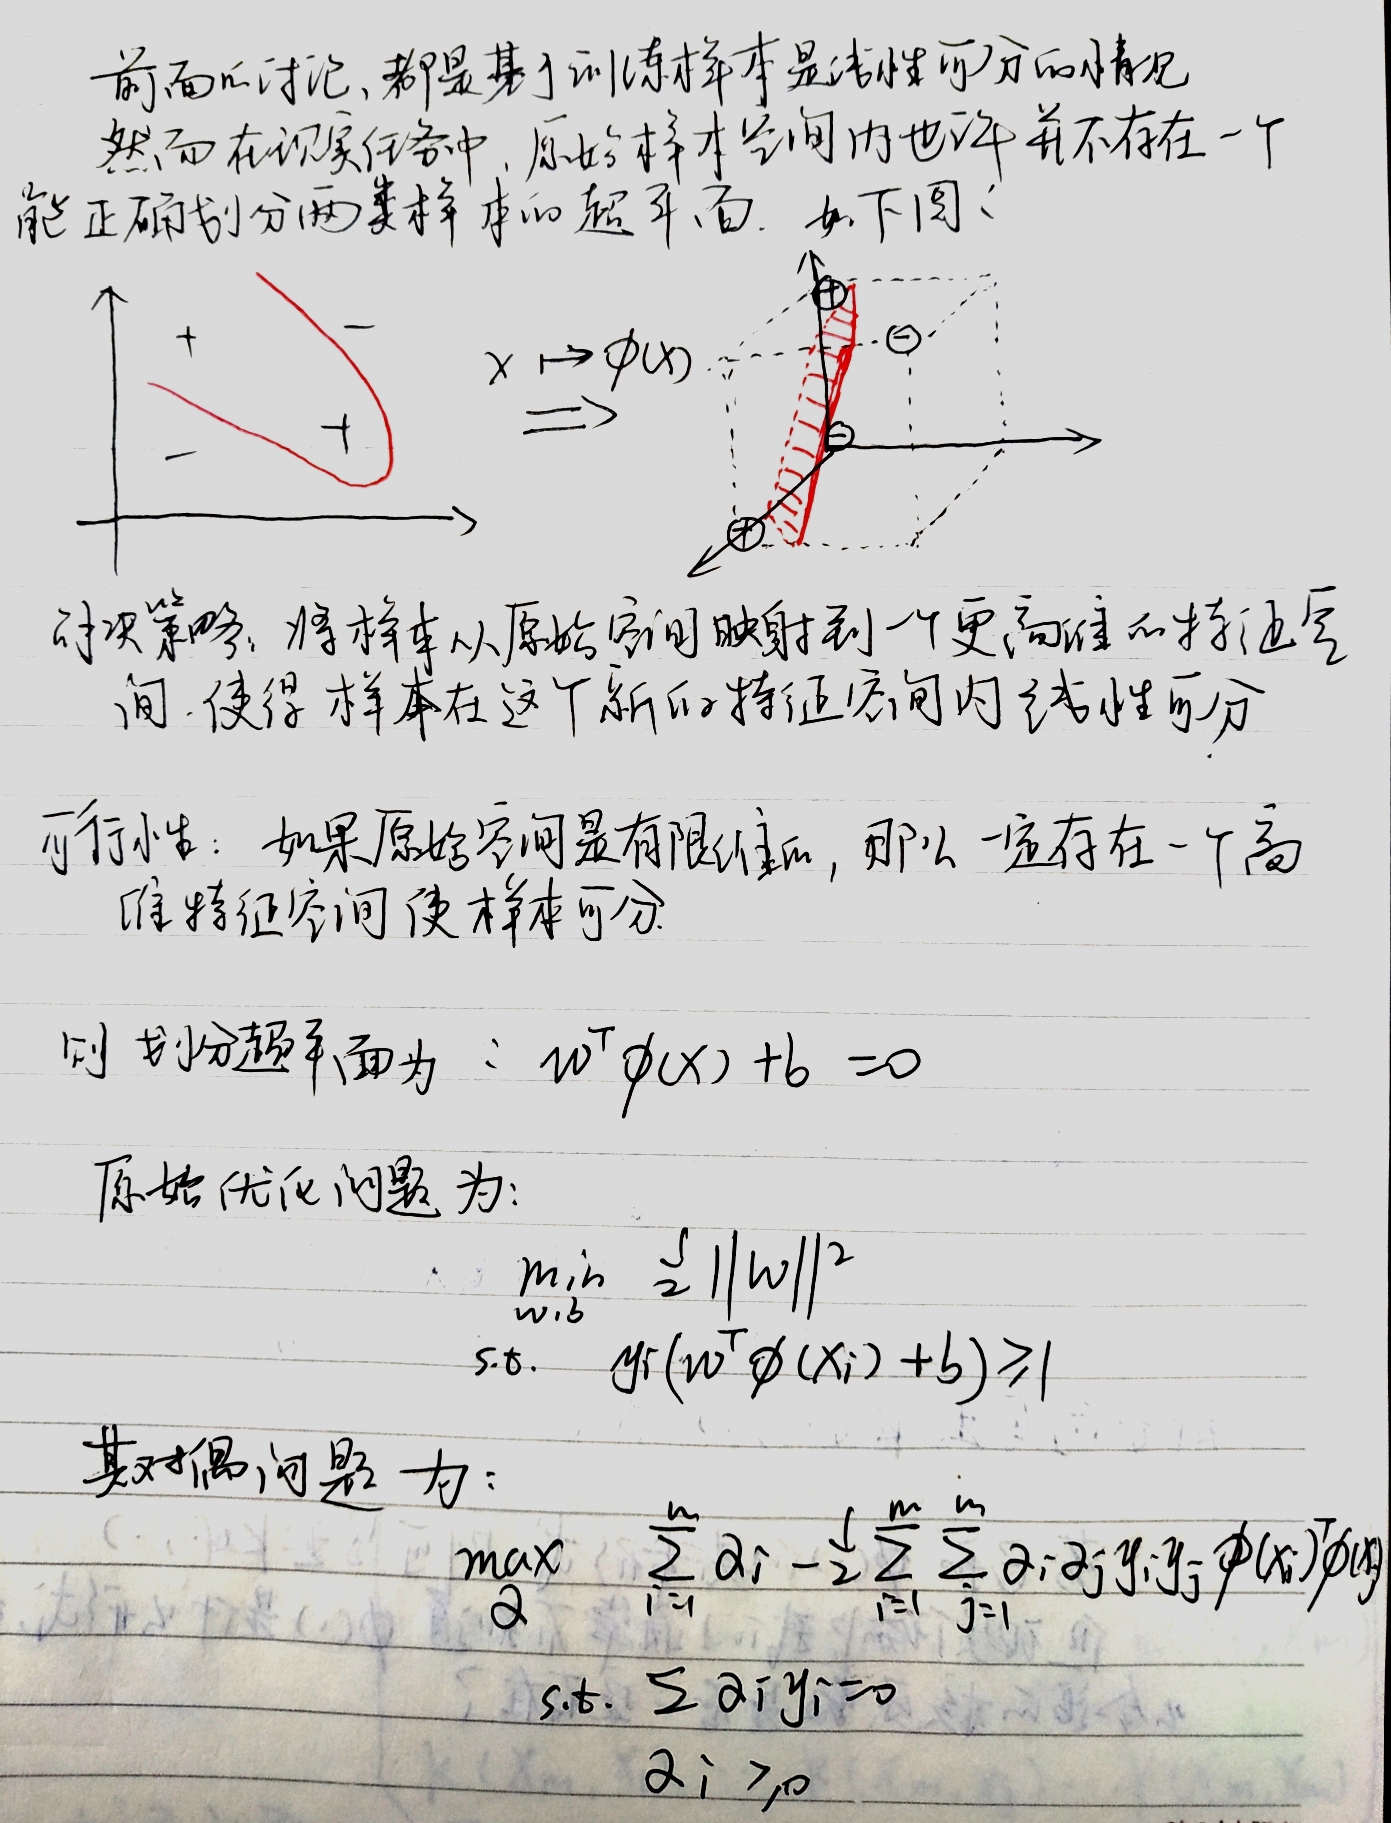 前面的讨论、都是基于训练样本是线性可分的情况
然而在现实任务中，原始样本空间内也许并不存在一个
能正确划分两类样本的超平面. 如下图：
+ -
- +
x ↦ φ(x)
⇒
⊕ ⊖
⊖
⊕
对决策略：将样本从原始空间映射到一个更高维的特征空
间. 使得样本在这个新的特征空间内线性可分.
可行性：如果原始空间是有限维的，那么一定存在一个高
维特征空间使样本可分.
则划分超平面为：w^T φ(x) + b = 0
原始优化问题为：
min_{w,b} 1/2 ||w||^2
s.t. y_i(w^T φ(x_i) + b) ≥ 1
其对偶问题为：
max_α Σ_{i=1}^m α_i - 1/2 Σ_{i=1}^m Σ_{j=1}^m α_i α_j y_i y_j φ(x_i)^T φ(x_j)
s.t. Σ α_i y_i = 0
α_i ≥ 0